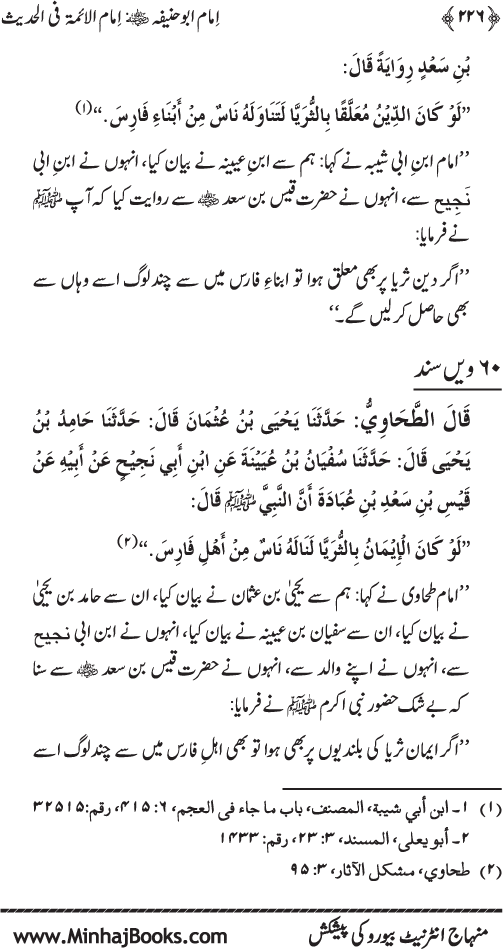 ﴿۲۲۶﴾ امام ابوحنیفہ رضی اللہ عنہ امام الائمۃ فی الحدیث
بْنِ سَعْدٍ رِوَايَةً قَالَ:
”لَوْ كَانَ الدِّيْنُ مُعَلَّقًا بِالثُّرَيَّا لَتَنَاوَلَهُ نَاسٌ مِنْ أَبْنَاءِ فَارِسَ.“(۱)
’’امام ابن ابی شیبہ نے کہا: ہم سے ابن عیینہ نے بیان کیا، انہوں نے ابنِ ابی
نَجِیح سے، انہوں نے حضرت قیس بن سعد رضی اللہ عنہ سے روایت کیا کہ آپ ﷺ
نے فرمایا:
’’اگر دین ثریا پر بھی معلق ہوا تو ابناءِ فارس میں سے چند لوگ اسے وہاں سے
بھی حاصل کر لیں گے۔‘‘
۶۰ ویں سند
قَالَ الطَّحَاوِيُّ: حَدَّثَنَا يَحْيَى بْنُ عُثْمَانَ قَالَ: حَدَّثَنَا حَامِدُ بْنُ
يَحْيَى قَالَ: حَدَّثَنَا سُفْيَانُ بْنُ عُيَيْنَةَ عَنِ ابْنِ أَبِي نَجِيْحٍ عَنْ أَبِيْهِ عَنْ
قَيْسِ بْنِ سَعْدِ بْنِ عُبَادَةَ أَنَّ النَّبِيَّ ﷺ قَالَ:
”لَوْ كَانَ الْإِيْمَانُ بِالثُّرَيَّا لَنَالَهُ نَاسٌ مِنْ أَهْلِ فَارِسَ.“(۲)
’’امام طحاوی نے کہا: ہم سے یحییٰ بن عثمان نے بیان کیا، ان سے حامد بن یحییٰ
نے بیان کیا، ان سے سفیان بن عیینہ نے بیان کیا، انہوں نے ابن ابی نجیح
سے، انہوں نے اپنے والد سے، انہوں نے حضرت قیس بن سعد رضی اللہ عنہ سے سنا
کہ بے شک حضور نبی اکرم ﷺ نے فرمایا:
’’اگر ایمان ثریا کی بلندیوں پر بھی ہوا تو بھی اہلِ فارس میں سے چند لوگ اسے
(۱) ۱۔ ابن أبي شيبة، المصنف، باب ما جاء فی العجم، ۶: ۴۱۵، رقم: ۳۲۵۱۵
۲۔ أبو يعلی، المسند، ۳: ۲۳، رقم: ۱۴۳۳
(۲) طحاوي، مشكل الآثار، ۳: ۹۵
منہاج انٹرنیٹ بیورو کی پیشکش www.MinhajBooks.com